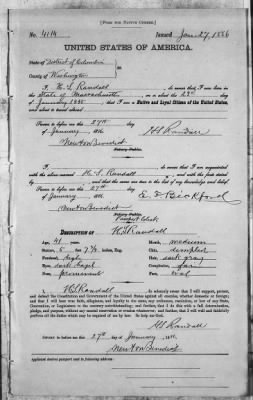 [FORM FOR NATIVE CITIZEN.]
No. 4114 Issued Jan. 27, 1886
UNITED STATES OF AMERICA.
State of District of Columbia
County of Washington
I, H. S. Randall do swear that I was born in
the State of Massachusetts on or about the 28th day
of January 1845, that I am a Native and Loyal Citizen of the United States,
and about to travel abroad.
Sworn to before me this 27th day
of January 1886
Newton Benedict
H S Randall
Notary Public.
I, do swear that I am acquainted
with the above-named H. S. Randall, and with the facts stated
and that the same are true to the best of my knowledge and belief.
Sworn to before me this 27th day
of January 1886
E. F. Bickford
Newton Benedict
Notary Public.
Passport Clerk
DESCRIPTION OF H S Randall
Age, 41 years. Mouth, medium
Stature, 5 feet, 7 1/2 inches, Eng. Chin, dimpled
Forehead, high Hair, dark gray
Eyes, dark hazel Complexion, fair
Nose, prominent Face, oval
I, H S Randall, do solemnly swear that I will support, protect,
and defend the Constitution and Government of the United States against all enemies, whether domestic or foreign;
and that I will bear true faith, allegiance, and loyalty to the same, any ordinance, resolution, or law of any State,
Convention, or Legislature to the contrary notwithstanding; and further, that I do this with a full determination,
pledge, and purpose, without any mental reservation or evasion whatsoever; and further, that I will well and faithfully
perform all the duties which may be required of me by law. So help me God.
H S Randall
SWORN to before me this 27th day of January 1886
Newton Benedict
Applicant desires passport sent to following address: